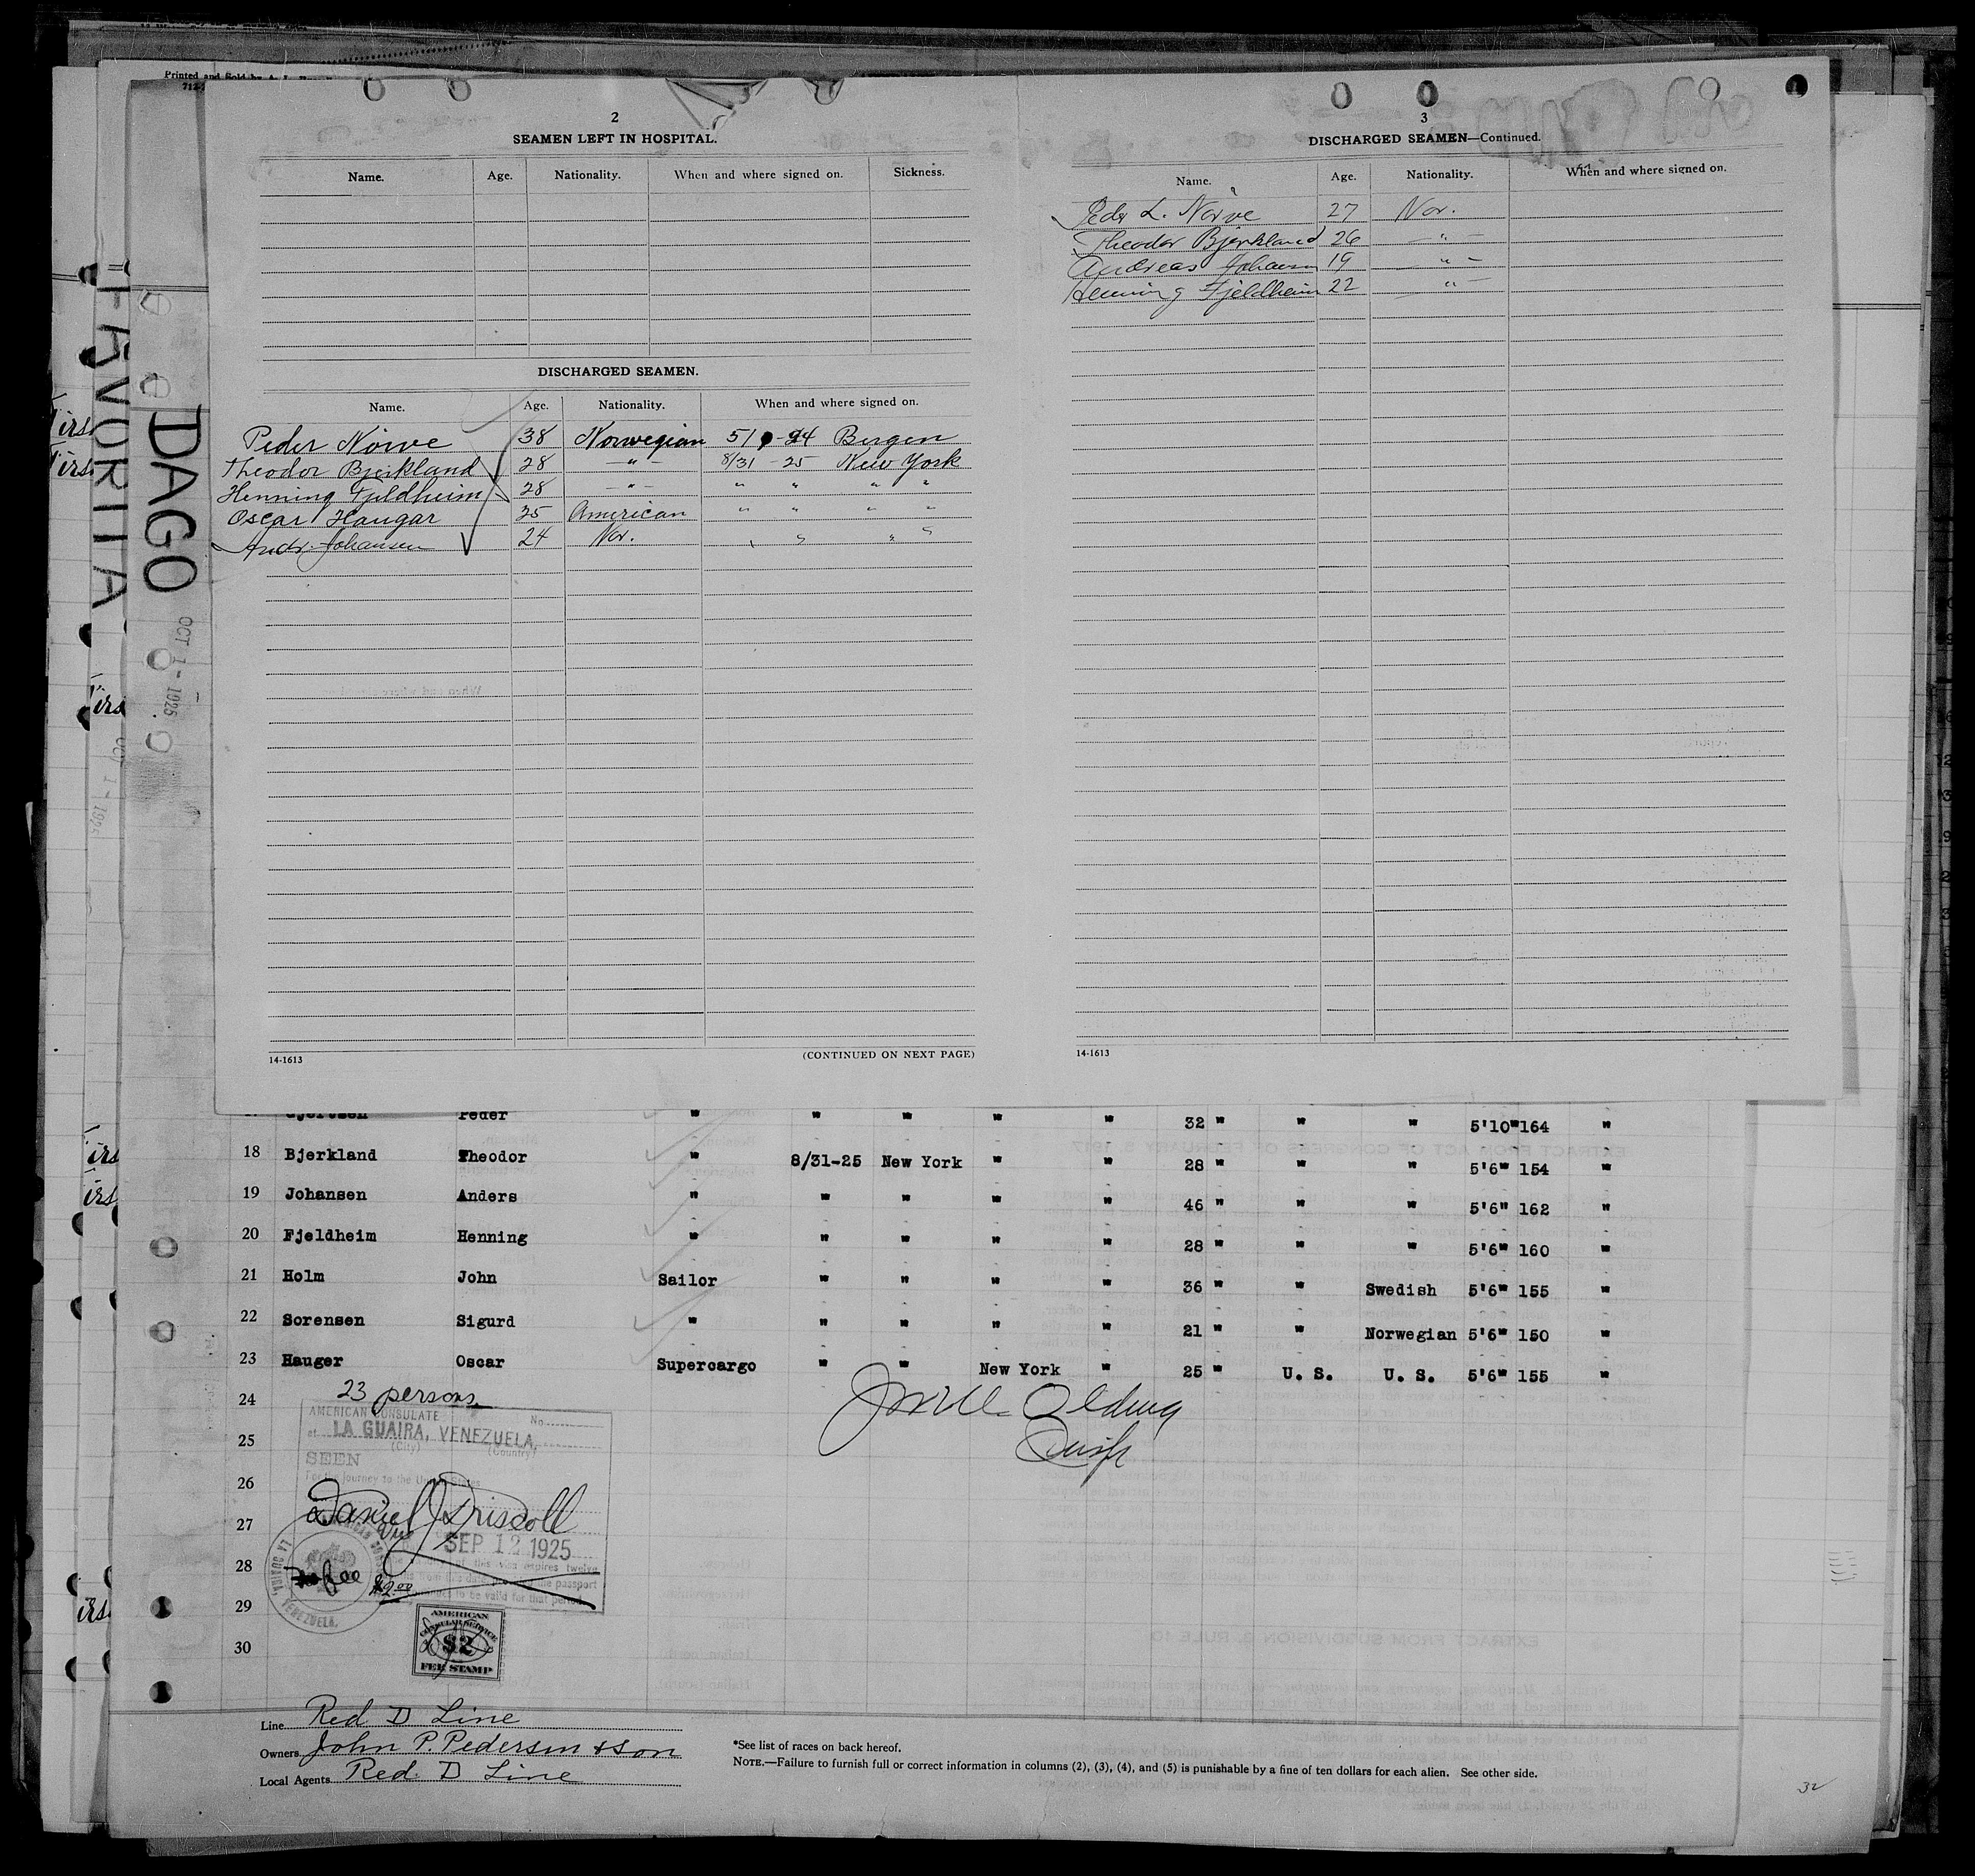 Printed and Sold by
2
SEAMEN LEFT IN HOSPITAL.
Name. Age. Nationality. When and where signed on. Sickness.
DISCHARGED SEAMEN.
Name. Age. Nationality. When and where signed on.
Peder Nörve 38 Norwegian Bergen
Theodor Bjerkland 28 -"- 8/31-25 New York
Henning Fjeldheim 28 -"- " " " "
Oscar Haugar 25 American " " " "
Andr. Johansen 24 Nor. " " " "
14-1613 (CONTINUED ON NEXT PAGE)
3
DISCHARGED SEAMEN—Continued.
Name. Age. Nationality. When and where signed on.
Peder L. Nörve 27 Nor.
Theodor Bjerkland 26 -"-
Andreas Johansen 19 -"-
Henning Fjeldheim 22 -"-
14-1613
FAVORITA
DAGO
OCT 1 - 1925
OCT 1 - 1925
Peder " " " " " 32 " " " 5'10" 164 "
18 Bjerkland Theodor " 8/31-25 New York " " 28 " " " 5'6" 154 "
19 Johansen Anders " " " " " 46 " " " 5'6" 162 "
20 Fjeldheim Henning " " " " " 28 " " " 5'6" 160 "
21 Holm John Sailor " " " " 36 " " Swedish 5'6" 155 "
22 Sorensen Sigurd " " " " " 21 " " Norwegian 5'6" 150 "
23 Hauger Oscar Supercargo " " New York " 25 " U. S. U. S. 5'6" 155 "
24 23 persons
AMERICAN CONSULATE No.
at LA GUAIRA, VENEZUELA.
(City) (Country)
25
SEEN
For the journey to the United States
26
Daniel J Driscoll
27
SEP 12 1925
28
fee $2.00
29
AMERICAN CONSULAR SERVICE
$2
FEE STAMP
LA GUAIRA, VENEZUELA.
30
Line Red D Line
Owners John P. Pedersen & Son
Local Agents Red D Line
*See list of races on back hereof.
NOTE.—Failure to furnish full or correct information in columns (2), (3), (4), and (5) is punishable by a fine of ten dollars for each alien. See other side.
32